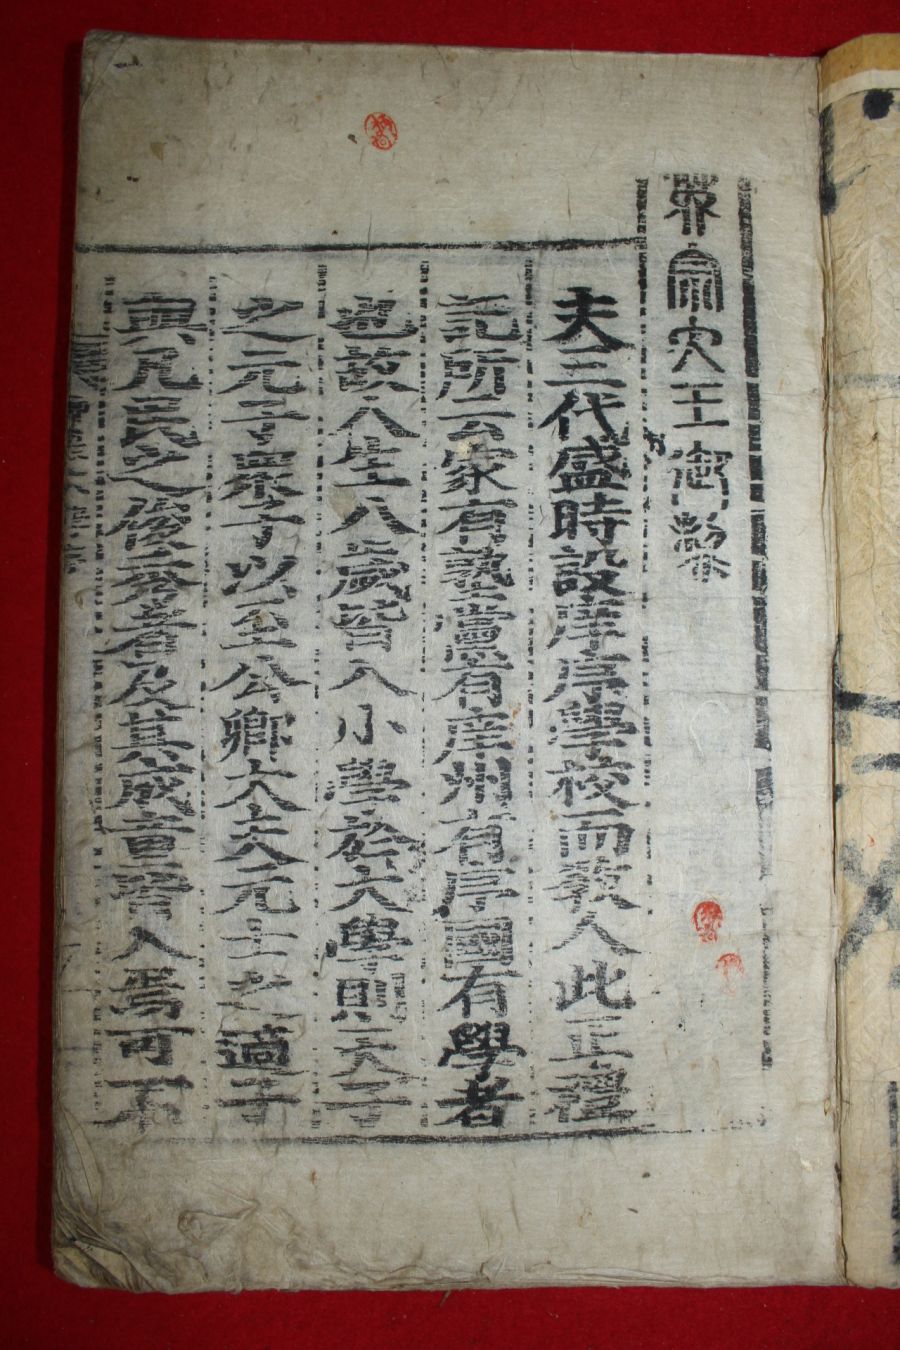 肅宗大王御製
夫三代盛時設庠序學校而敎人此正禮
記所云家有塾黨有庠州有序國有學者
也故人生八歲皆入小學於大學則天子
之元子衆子以至公卿大夫元士之適子
與凡民之俊秀者及其成童皆入焉可不